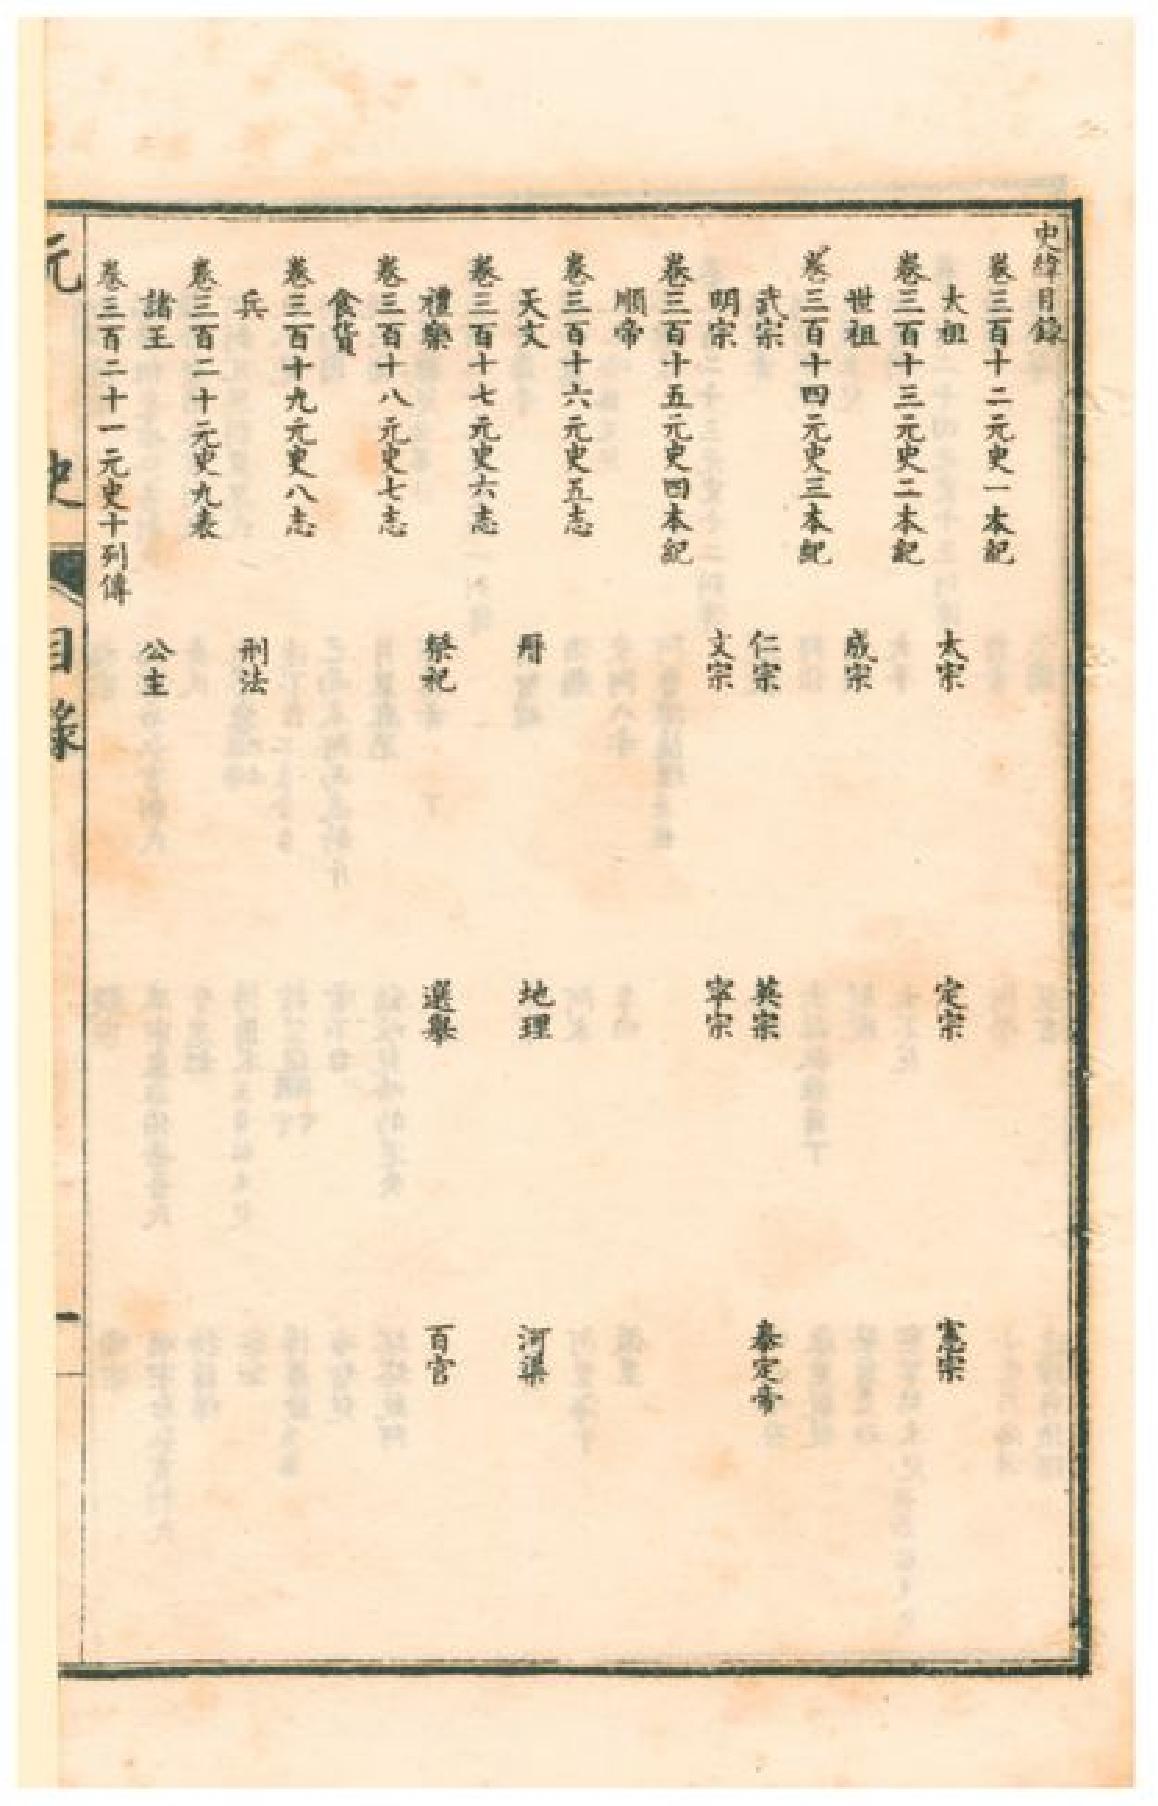 史緯目錄
卷三百十二元史一本紀
太祖 太宗 定宗 憲宗
卷三百十三元史二本紀
世祖 成宗
卷三百十四元史三本紀
武宗 仁宗 英宗 泰定帝
明宗 文宗 寧宗
卷三百十五元史四本紀
順帝
卷三百十六元史五志
天文 曆 地理 河渠
卷三百十七元史六志
禮樂 祭祀 選舉 百官
卷三百十八元史七志
食貨
卷三百十九元史八志
兵 刑法
卷三百二十元史九表
諸王 公主
卷三百二十一元史十列傳
元史 目錄 一